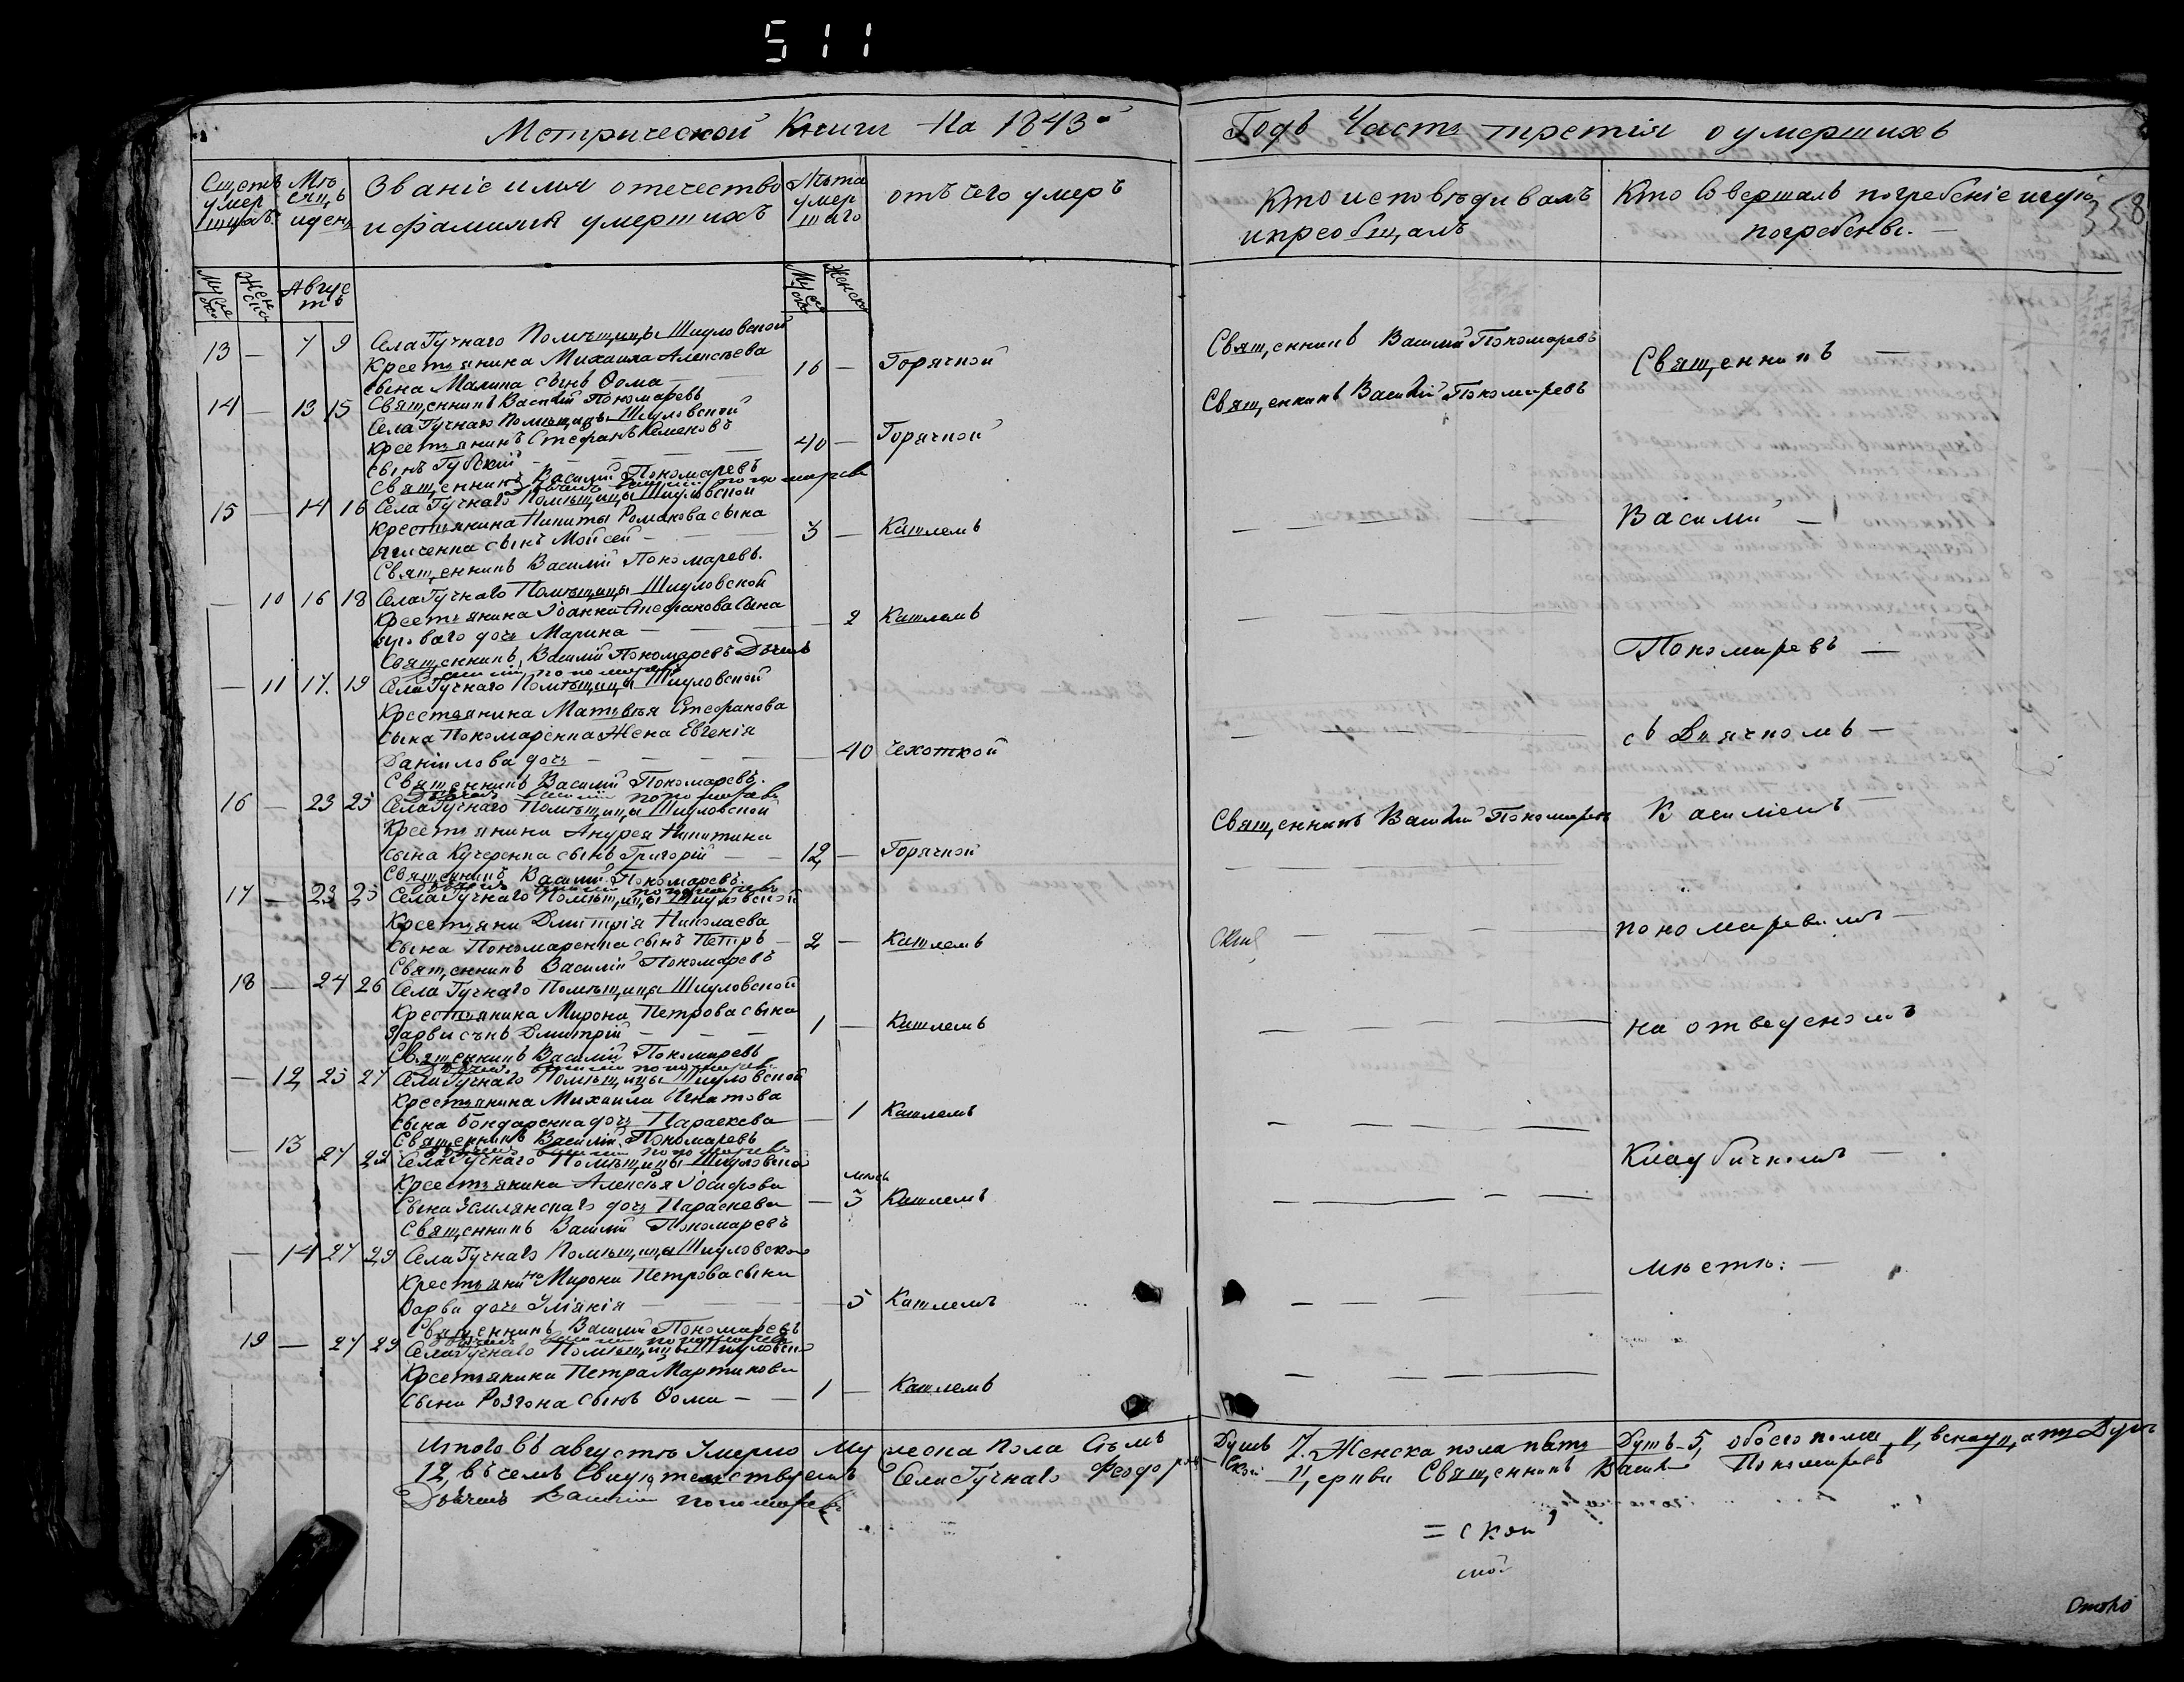 511
Метрической Книги На 1843й Годъ Часть третія о умершихъ
358
Мѣсяцъ и день
Званіе имя отечество и фамилія умершихъ
Лѣта умершаго
отъ чего умеръ
Кто исповѣдивалъ и пріобщалъ
Кто Совершалъ погребеніе и гдѣ погребены.
Августъ
13 — 7 9 Села Гучнаго Помѣщицы Шидловской
Крестьянина Михаила Алексѣева
сына Малина сынъ Ѳома — 16 — Горячкой
Священникъ Василій Пономаревъ
Священникъ —
Священникъ Василій Пономаревъ
14 — 13 15 Села Гучнаго Помѣщицы Шидловской
Крестьянинъ Стефанъ Семеновъ
сынъ Губскій — 40 — Горячкой
Священникъ Василій Пономаревъ
Священникъ Василій Пономаревъ
Дьячекъ Василій пономаревъ
15 — 14 16 Села Гучнаго Помѣщицы Шидловской
Крестьянина Никиты Романова сына
сынъ Мойсей — 3 — Кашлемъ
Василій —
Священникъ Василій Пономаревъ.
— 10 16 18 Села Гучнаго Помѣщицы Шидловской
Крестьянина Іоанна Стефанова Сына
дочь Марина — 2 Кашлемъ
Священникъ Василій Пономаревъ Дьячекъ
Василій пономаревъ
Пономаревъ —
— 11 17. 19 Села Гучнаго Помѣщицы Шидловской
Крестьянина Матвѣя Стефанова
сына Пономаренка Жена Евгенія
Даніилова дочь — 40 чехоткой
съ Дьячкомъ —
Священникъ Василій Пономаревъ.
Дьячекъ Василій пономаревъ
16 — 23 25 Села Гучнаго Помѣщицы Шидловской
Крестьянина Андрея Никитина
сына Кучеренка сынъ Григорій — 12 — Горячкой
Священникъ Василій Пономаревъ
Василіемъ —
Священникъ Василій Пономаревъ.
Дьячекъ Василій пономаревъ
17 — 23 25 Села Гучнаго Помѣщицы Шидловской
Крестьяни Димитрія Николаева
сына Пономаренка сынъ Петръ — 2 — Кашлемъ
пономаревымъ —
Священникъ Василій Пономаревъ
18 — 24 26 Села Гучнаго Помѣщицы Шидловской
Крестьянина Мирона Петрова сына
сынъ Димитрій — 1 — Кашлемъ
на отведеномъ
Священникъ Василій Пономаревъ
Дьячекъ Василій пономаревъ
— 12 25 27 Села Гучнаго Помѣщицы Шидловской
Крестьянина Михаила Игнатова
сына Бондаренка дочь Параскева — 1 Кашлемъ
Священникъ Василій Пономаревъ
Дьячекъ Василій пономаревъ
— 13 27 Села Гучнаго Помѣщицы Шидловской
Крестьянина Алексѣя Іосифова
Сына Землянскаго дочь Параскева — 3 Кашлемъ
Кладбичномъ —
Священникъ Василій Пономаревъ
— 14 27 29 Села Гучнаго Помѣщицы Шидловской
Крестьянина Мирона Петрова сына
дочь — 5 Кашлемъ
мѣстѣ: —
Священникъ Василій Пономаревъ
Дьячекъ Василій пономаревъ
19 — 27 29 Села Гучнаго Помѣщицы Шидловской
Крестьянина Петра Мартинова
сына Розгона Сынъ Ѳома — 1 — Кашлемъ
Итого въ августѣ Умерло Мужеска Пола Семь Душъ 7. Женска пола пять Душъ 5, обоего пола
12, въ чемъ Свидѣтельствуемъ Села Гучнаго Церкви Священникъ Василій Пономаревъ
Дьячекъ Василій пономаревъ
= ской
ской